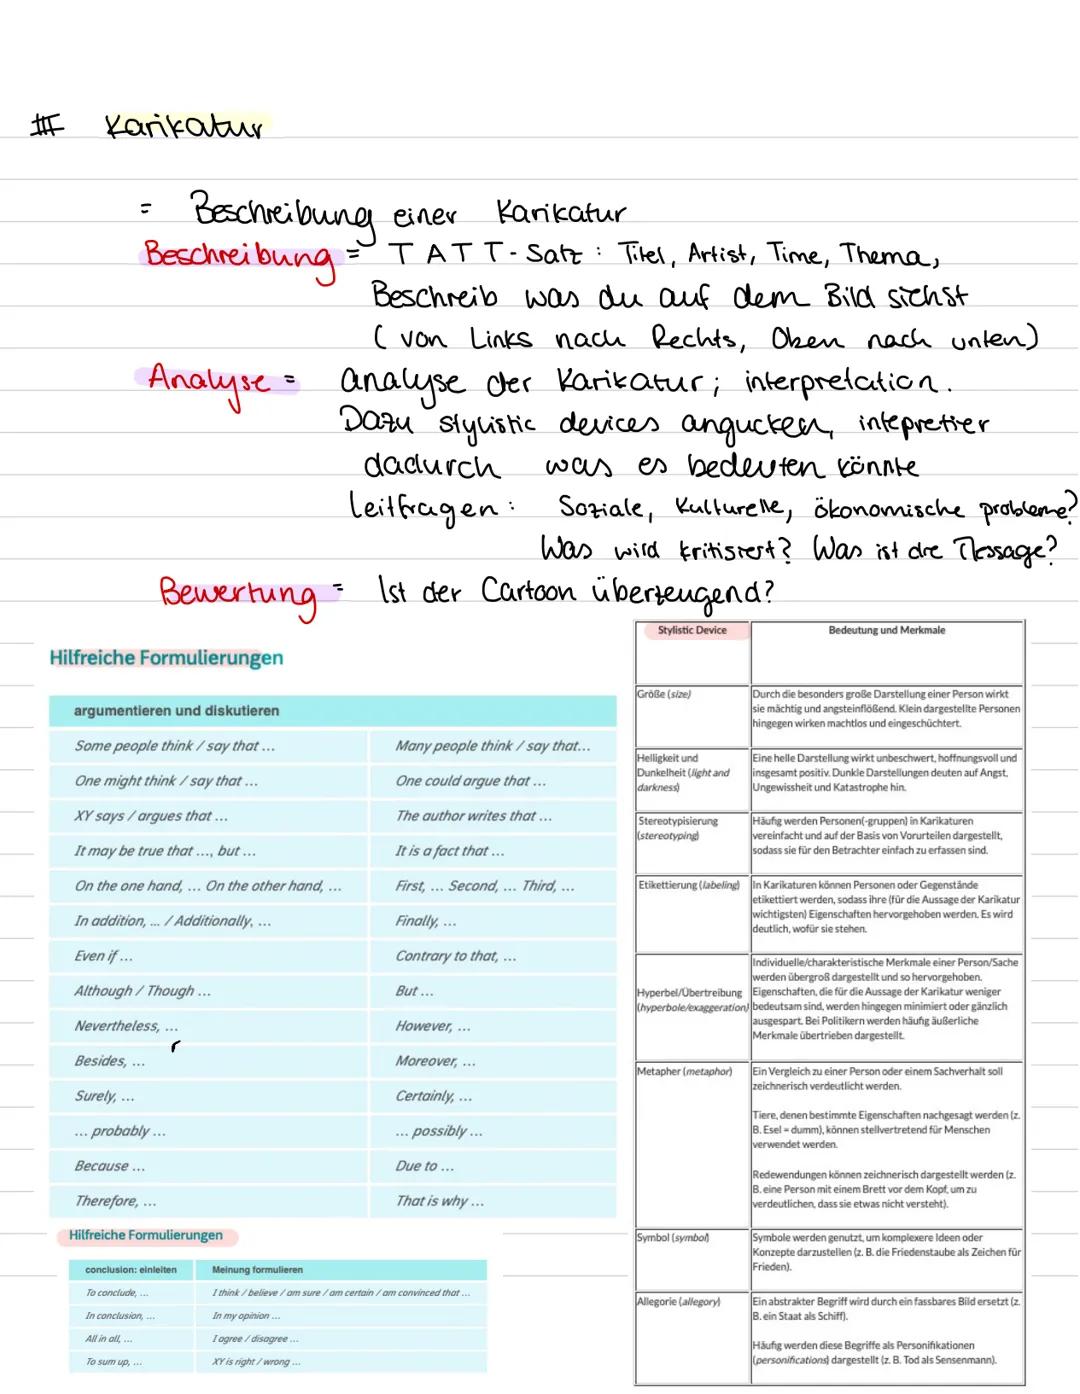 III Karikatur
= Beschreibung einer Karikatur
Beschreibung = TATT-Satz : Titel, Artist, Time, Thema,
Beschreib was du auf dem Bild siehst
( von Links nach Rechts, Oben nach unten)
Analyse = analyse der Karikatur; interpretation.
Dazu stylistic devices angucken, intepretier
dadurch was es bedeuten könnte
Leitfragen : Soziale, Kulturelle, ökonomische probleme?
Was wird kritisiert? Was ist die Message?
Bewertung = Ist der Cartoon überzeugend?
Hilfreiche Formulierungen
argumentieren und diskutieren
Some people think / say that ... Many people think / say that...
One might think / say that ... One could argue that ...
XY says / argues that ... The author writes that ...
It may be true that ..., but ... It is a fact that ...
On the one hand, ... On the other hand, ... First, ... Second, ... Third, ...
In addition, ... / Additionally, ... Finally, ...
Even if ... Contrary to that, ...
Although / Though ... But ...
Nevertheless, ... However, ...
Besides, ... Moreover, ...
Surely, ... Certainly, ...
... probably ... ... possibly ...
Because ... Due to ...
Therefore, ... That is why ...
Hilfreiche Formulierungen
conclusion: einleiten Meinung formulieren
To conclude, ... I think / believe / am sure / am certain / am convinced that ...
In conclusion, ... In my opinion ...
All in all, ... I agree / disagree ...
To sum up, ... XY is right / wrong ...
Stylistic Device Bedeutung und Merkmale
Größe (size)
Durch die besonders große Darstellung einer Person wirkt
sie mächtig und angsteinflößend. Klein dargestellte Personen
hingegen wirken machtlos und eingeschüchtert.
Helligkeit und
Dunkelheit (light and
darkness)
Eine helle Darstellung wirkt unbeschwert, hoffnungsvoll und
insgesamt positiv. Dunkle Darstellungen deuten auf Angst,
Ungewissheit und Katastrophe hin.
Stereotypisierung
(stereotyping)
Häufig werden Personen(-gruppen) in Karikaturen
vereinfacht und auf der Basis von Vorurteilen dargestellt,
sodass sie für den Betrachter einfach zu erfassen sind.
Etikettierung (labeling)
In Karikaturen können Personen oder Gegenstände
etikettiert werden, sodass ihre (für die Aussage der Karikatur
wichtigsten) Eigenschaften hervorgehoben werden. Es wird
deutlich, wofür sie stehen.
Hyperbel/Übertreibung
(hyperbole/exaggeration)
Individuelle/charakteristische Merkmale einer Person/Sache
werden übergroß dargestellt und so hervorgehoben.
Eigenschaften, die für die Aussage der Karikatur weniger
bedeutsam sind, werden hingegen minimiert oder gänzlich
ausgespart. Bei Politikern werden häufig äußerliche
Merkmale übertrieben dargestellt.
Metapher (metaphor)
Ein Vergleich zu einer Person oder einem Sachverhalt soll
zeichnerisch verdeutlicht werden.
Tiere, denen bestimmte Eigenschaften nachgesagt werden (z.
B. Esel = dumm), können stellvertretend für Menschen
verwendet werden.
Redewendungen können zeichnerisch dargestellt werden (z.
B. eine Person mit einem Brett vor dem Kopf, um zu
verdeutlichen, dass sie etwas nicht versteht).
Symbol (symbol)
Symbole werden genutzt, um komplexere Ideen oder
Konzepte darzustellen (z. B. die Friedenstaube als Zeichen für
Frieden).
Allegorie (allegory)
Ein abstrakter Begriff wird durch ein fassbares Bild ersetzt (z.
B. ein Staat als Schiff).
Häufig werden diese Begriffe als Personifikationen
(personifications) dargestellt (z. B. Tod als Sensenmann).